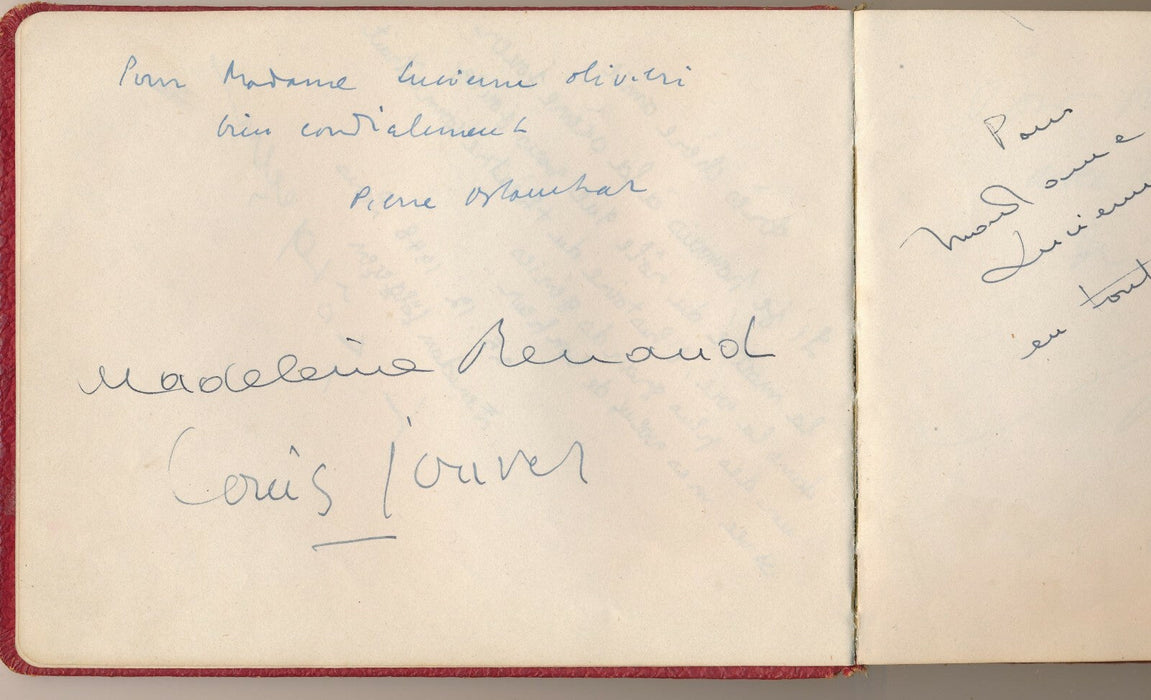 Pour Madame Lucienne Olivieri
bien cordialement
Pierre Blanchar
Madeleine Renaud
Louis Jouvet
Pour
Madame
Lucienne
en tout